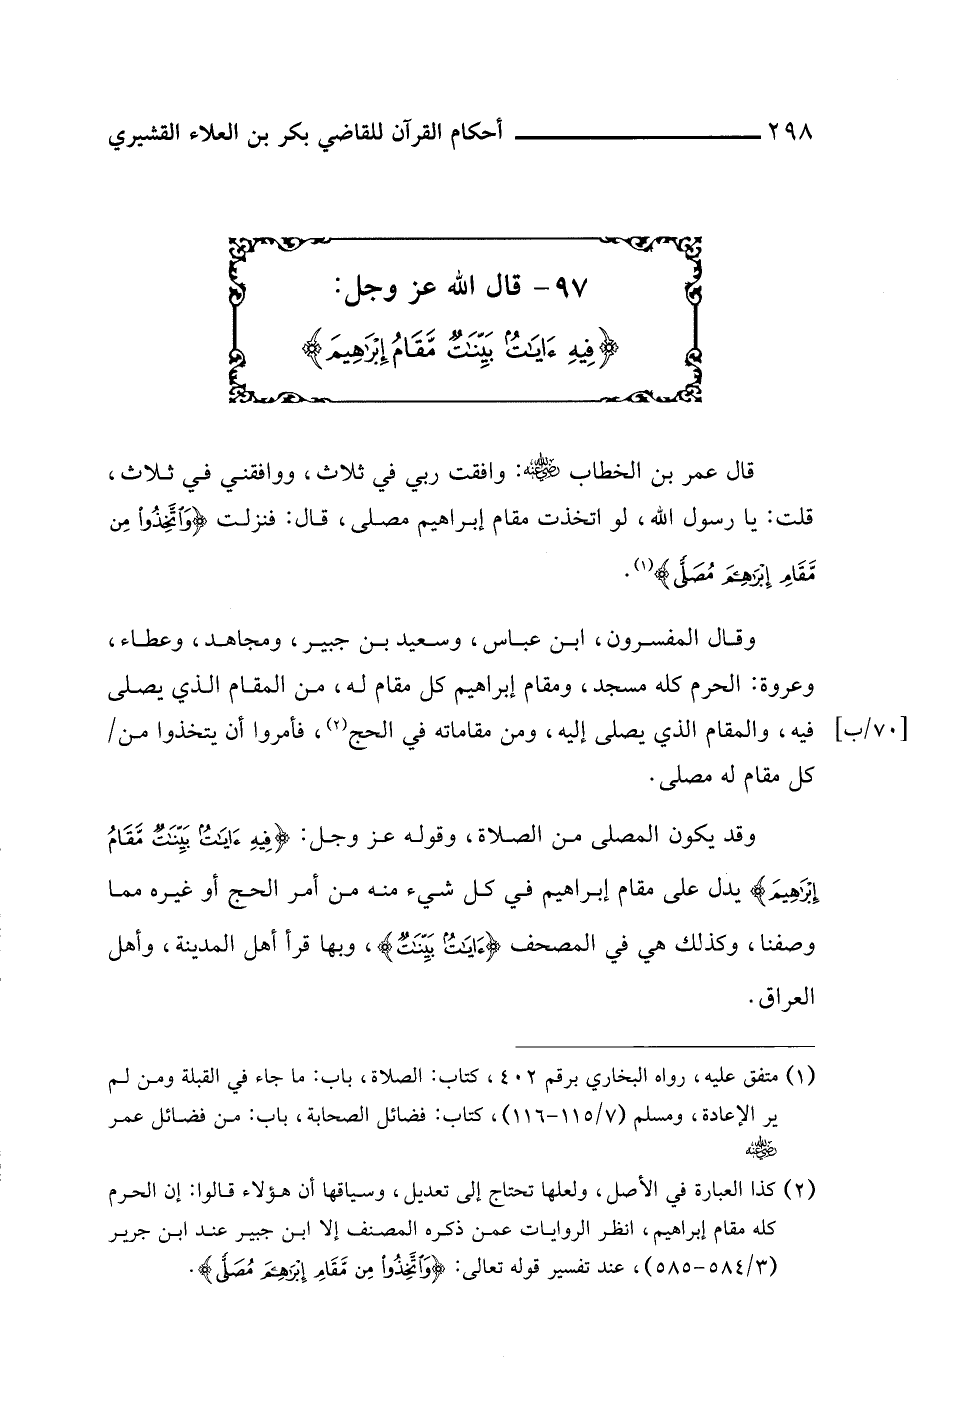 ٢٩٨ ــــــــــ أحكام القرآن للقاضي بكر بن العلاء القشيري
٩٧- قال الله عز وجل:
﴿فِيهِ ءَايَٰتُۢ بَيِّنَٰتٞ مَّقَامُ إِبْرَٰهِيمَ﴾
قال عمر بن الخطاب رضي الله عنه: وافقت ربي في ثلاث، ووافقني في ثلاث،
قلت: يا رسول الله، لو اتخذت مقام إبراهيم مصلى، قال: فنزلت ﴿وَٱتَّخِذُوا۟ مِن
مَّقَامِ إِبْرَٰهِۦمَ مُصَلًّى﴾(١).
وقال المفسرون، ابن عباس، وسعيد بن جبير، ومجاهد، وعطاء،
وعروة: الحرم كله مسجد، ومقام إبراهيم كل مقام له، من المقام الذي يصلى
فيه، والمقام الذي يصلى إليه، ومن مقاماته في الحج(٢)، فأمروا أن يتخذوا من/ [٧٠/ب]
كل مقام له مصلى.
وقد يكون المصلى من الصلاة، وقوله عز وجل: ﴿فِيهِ ءَايَٰتُۢ بَيِّنَٰتٞ مَّقَامُ
إِبْرَٰهِيمَ﴾ يدل على مقام إبراهيم في كل شيء منه من أمر الحج أو غيره مما
وصفنا، وكذلك هي في المصحف ﴿ءَايَٰتُۢ بَيِّنَٰتٞ﴾، وبها قرأ أهل المدينة، وأهل
العراق.
(١) متفق عليه، رواه البخاري برقم ٤٠٢، كتاب: الصلاة، باب: ما جاء في القبلة ومن لم
ير الإعادة، ومسلم (١١٥/٧-١١٦)، كتاب: فضائل الصحابة، باب: من فضائل عمر
رضي الله عنه
(٢) كذا العبارة في الأصل، ولعلها تحتاج إلى تعديل، وسياقها أن هؤلاء قالوا: إن الحرم
كله مقام إبراهيم، انظر الروايات عمن ذكره المصنف إلا ابن جبير عند ابن جرير
(٥٨٤/٣-٥٨٥)، عند تفسير قوله تعالى: ﴿وَٱتَّخِذُوا۟ مِن مَّقَامِ إِبْرَٰهِۦمَ مُصَلًّى﴾.